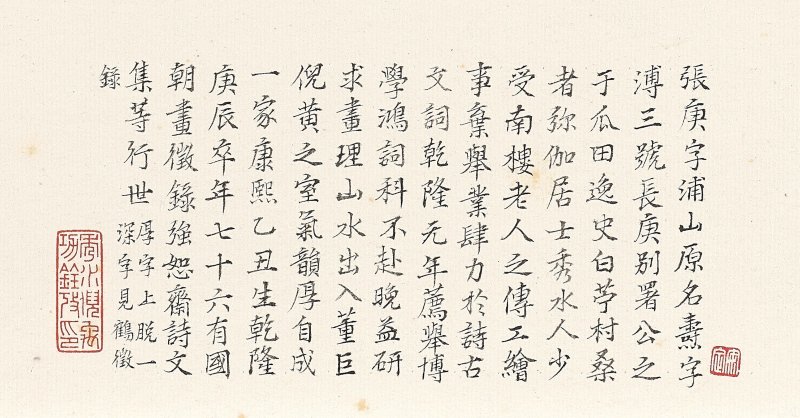 張庚字浦山原名燾字
溥三號長庚別署公之
于瓜田逸史白苧村桑
者弥伽居士秀水人少
受南樓老人之傳工繪
事棄舉業肆力於詩古
文詞乾隆元年薦舉博
學鴻詞科不赴晚益研
求畫理山水出入董巨
倪黃之室氣韻厚自成
一家康熙乙丑生乾隆
庚辰卒年七十六有國
朝畫徵錄強恕齋詩文
集等行世厚字上脫一
深字見鶴徵
錄